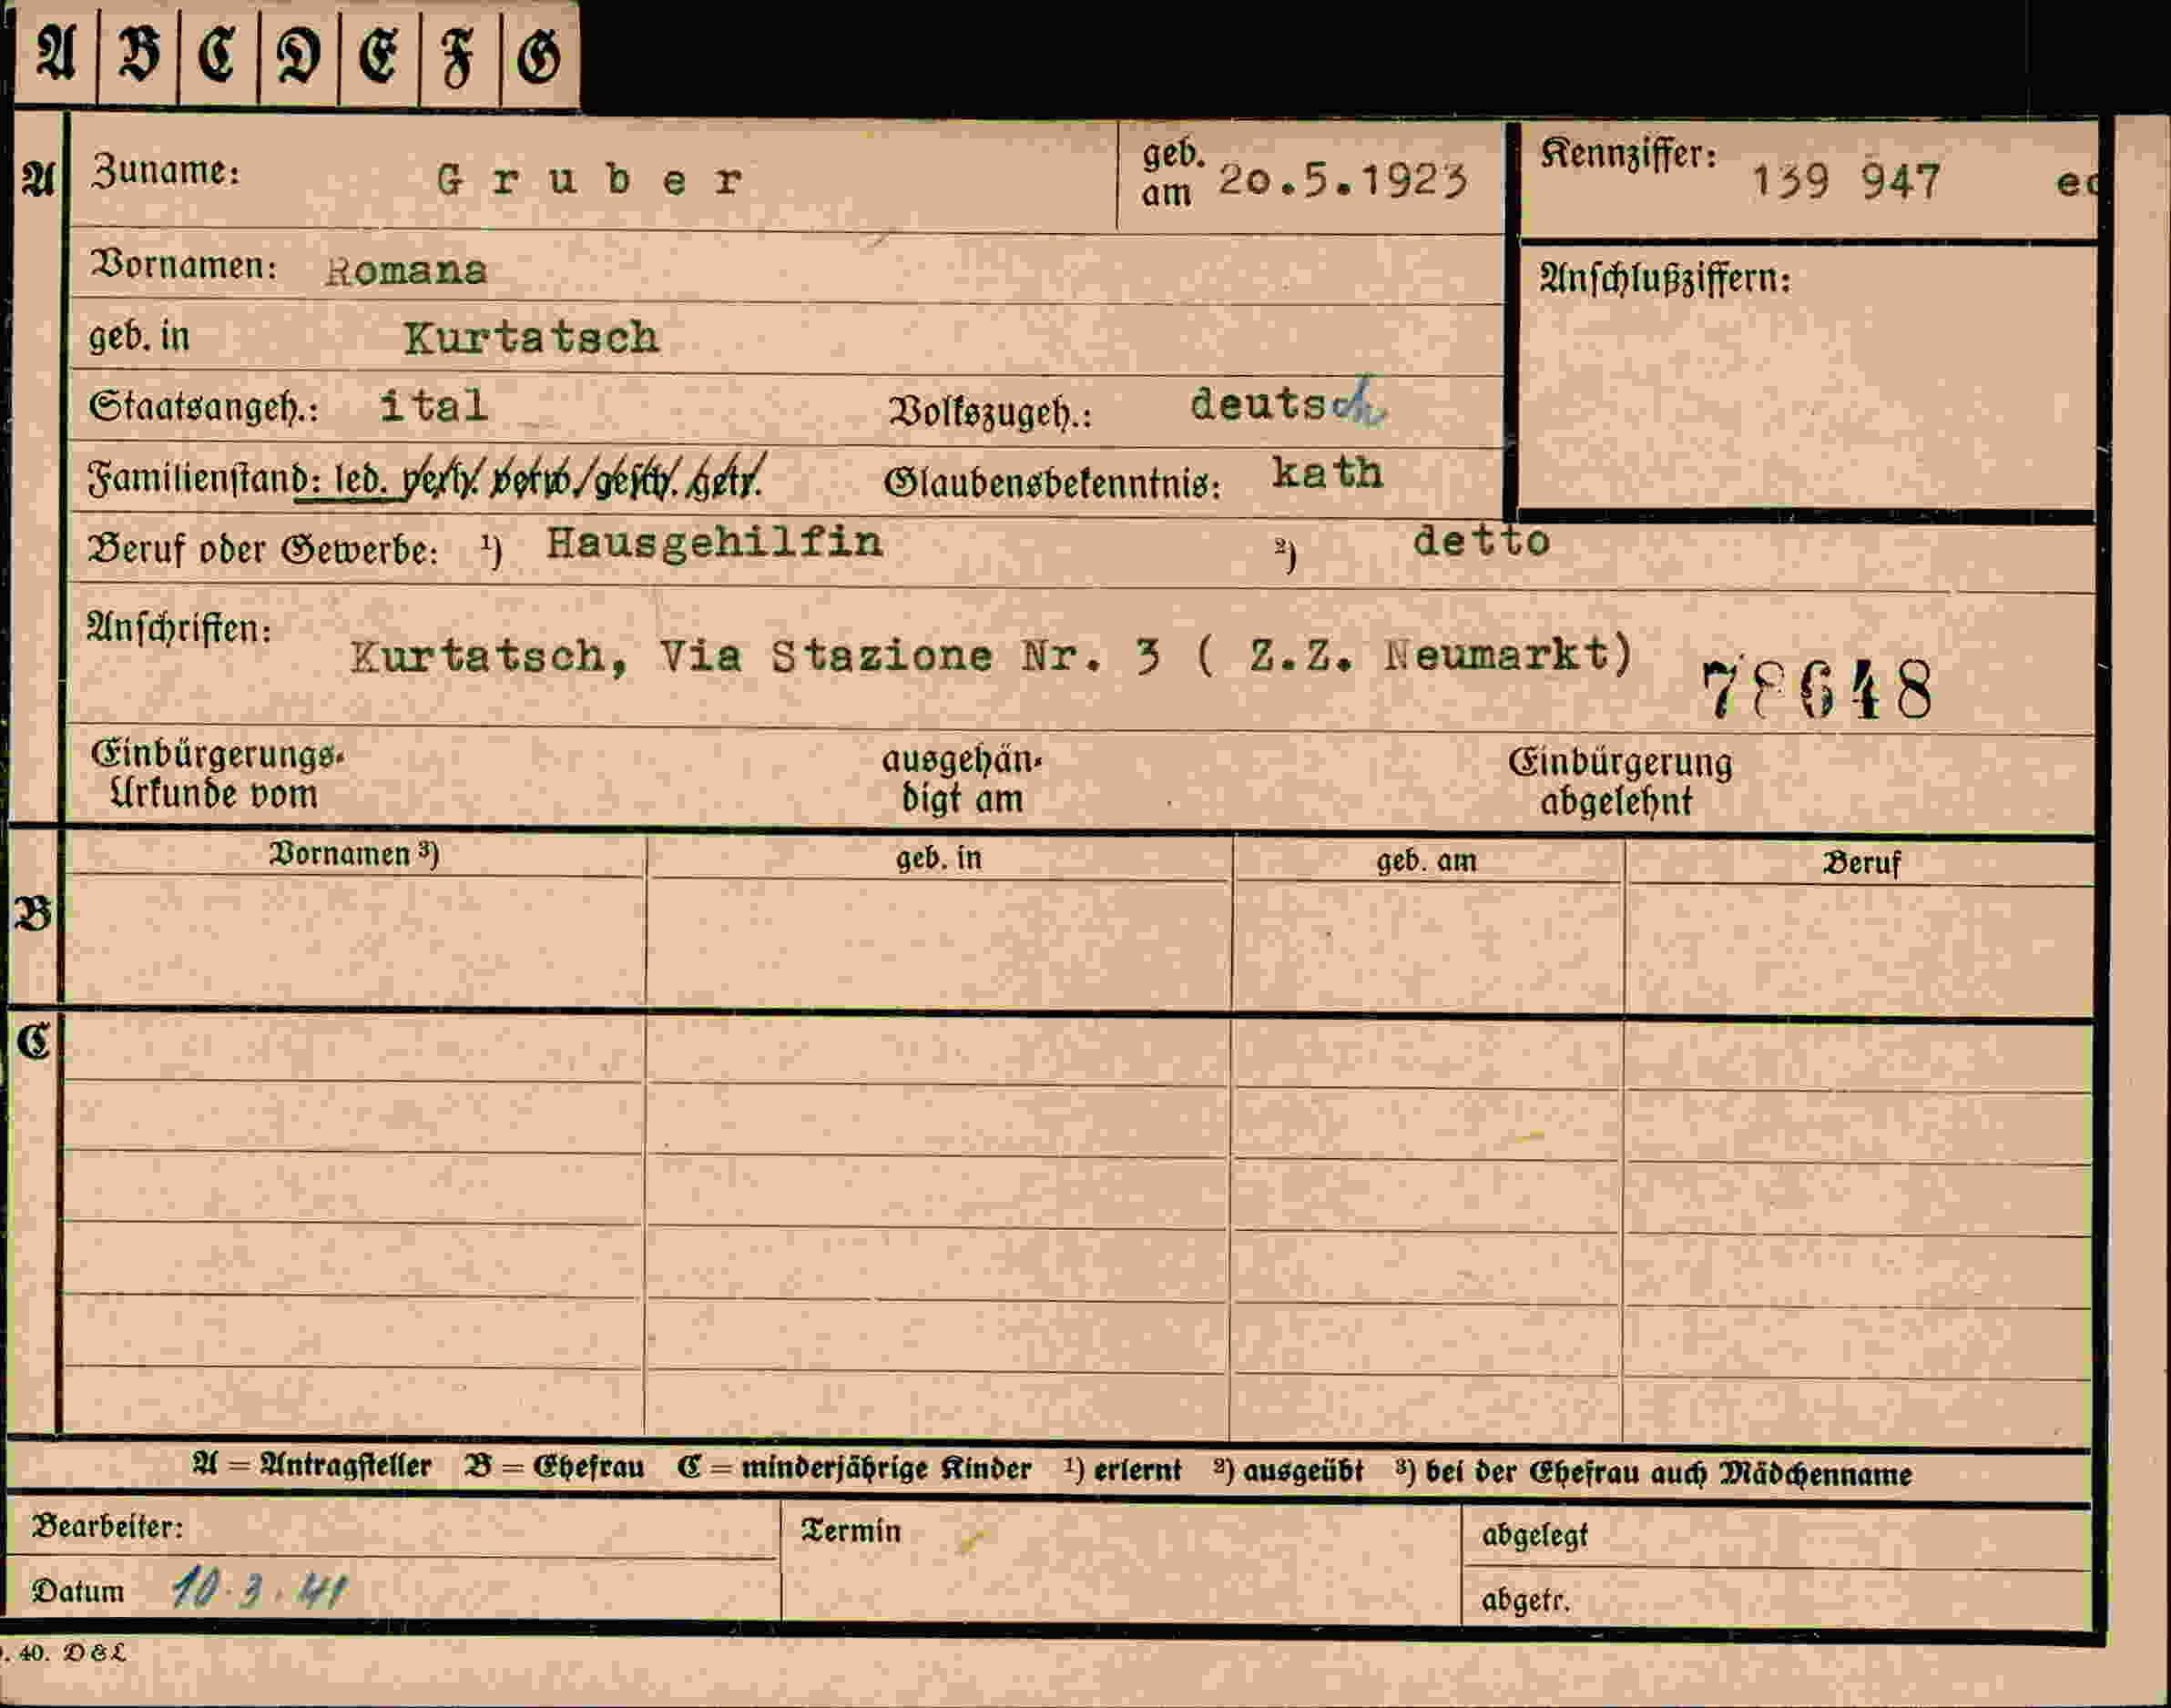 A B C D E F G
A Zuname: Gruber geb. am 20.5.1923 Kennziffer: 139 947
Vornamen: Romana Anschlußziffern:
geb. in Kurtatsch
Staatsangeh.: ital Volkszugeh.: deutsch
Familienstand: led. verh. verw. gesch. getr. Glaubensbekenntnis: kath
Beruf oder Gewerbe: ¹) Hausgehilfin ²) detto
Anschriften: Kurtatsch, Via Stazione Nr. 3 ( Z.Z. Neumarkt) 78648
Einbürgerungs- ausgehän- Einbürgerung
Urkunde vom digt am abgelehnt
Vornamen ³) geb. in geb. am Beruf
B
C
A = Antragsteller B = Ehefrau C = minderjährige Kinder ¹) erlernt ²) ausgeübt ³) bei der Ehefrau auch Mädchenname
Bearbeiter: Termin abgelegt
Datum 10.3.41 abgetr.
. 40. D & L